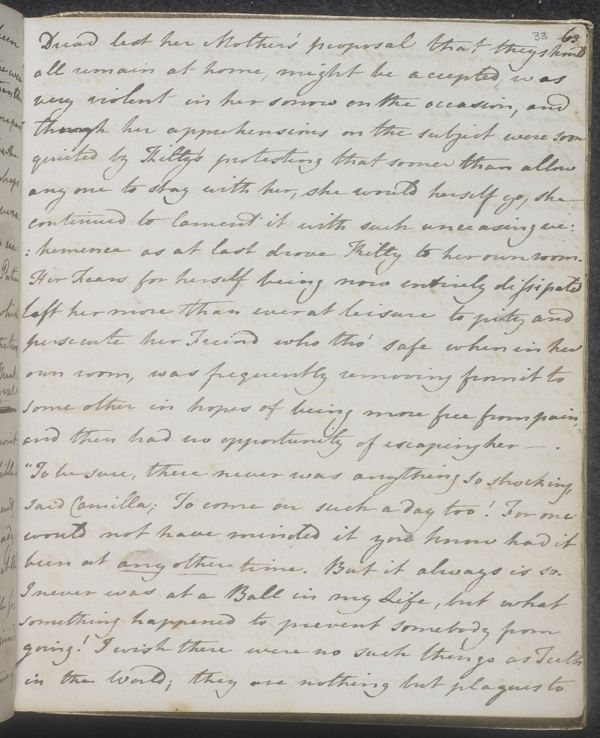 33 63
Dread lest her Mother's proposal that they should
all remain at home, might be accepted, was
very violent in her sorrow on the occasion, and
though her apprehensions on the subject were soon
quieted by Kitty's protesting that sooner than allow
any one to stay with her, she would herself go, she
continued to lament it with such unceasing ve:
:hemence as at last drove Kitty to her own room.
Her Fears for herself being now entirely dissipated
left her more than ever at leisure to pity and
persecute her Freind who tho' safe when in her
own room, was frequently removing from it to
some other in hopes of being more free from pain,
and then had no opportunity of escaping her—.
"To be sure, there never was anything so shocking,
said Camilla; To come on such a day too! For one
would not have minded it you know had it
been at any other time. But it always is so.
I never was at a Ball in my Life, but what
something happened to prevent somebody from
going! I wish there were no such things as Teeth
in the World; they are nothing but plagues to